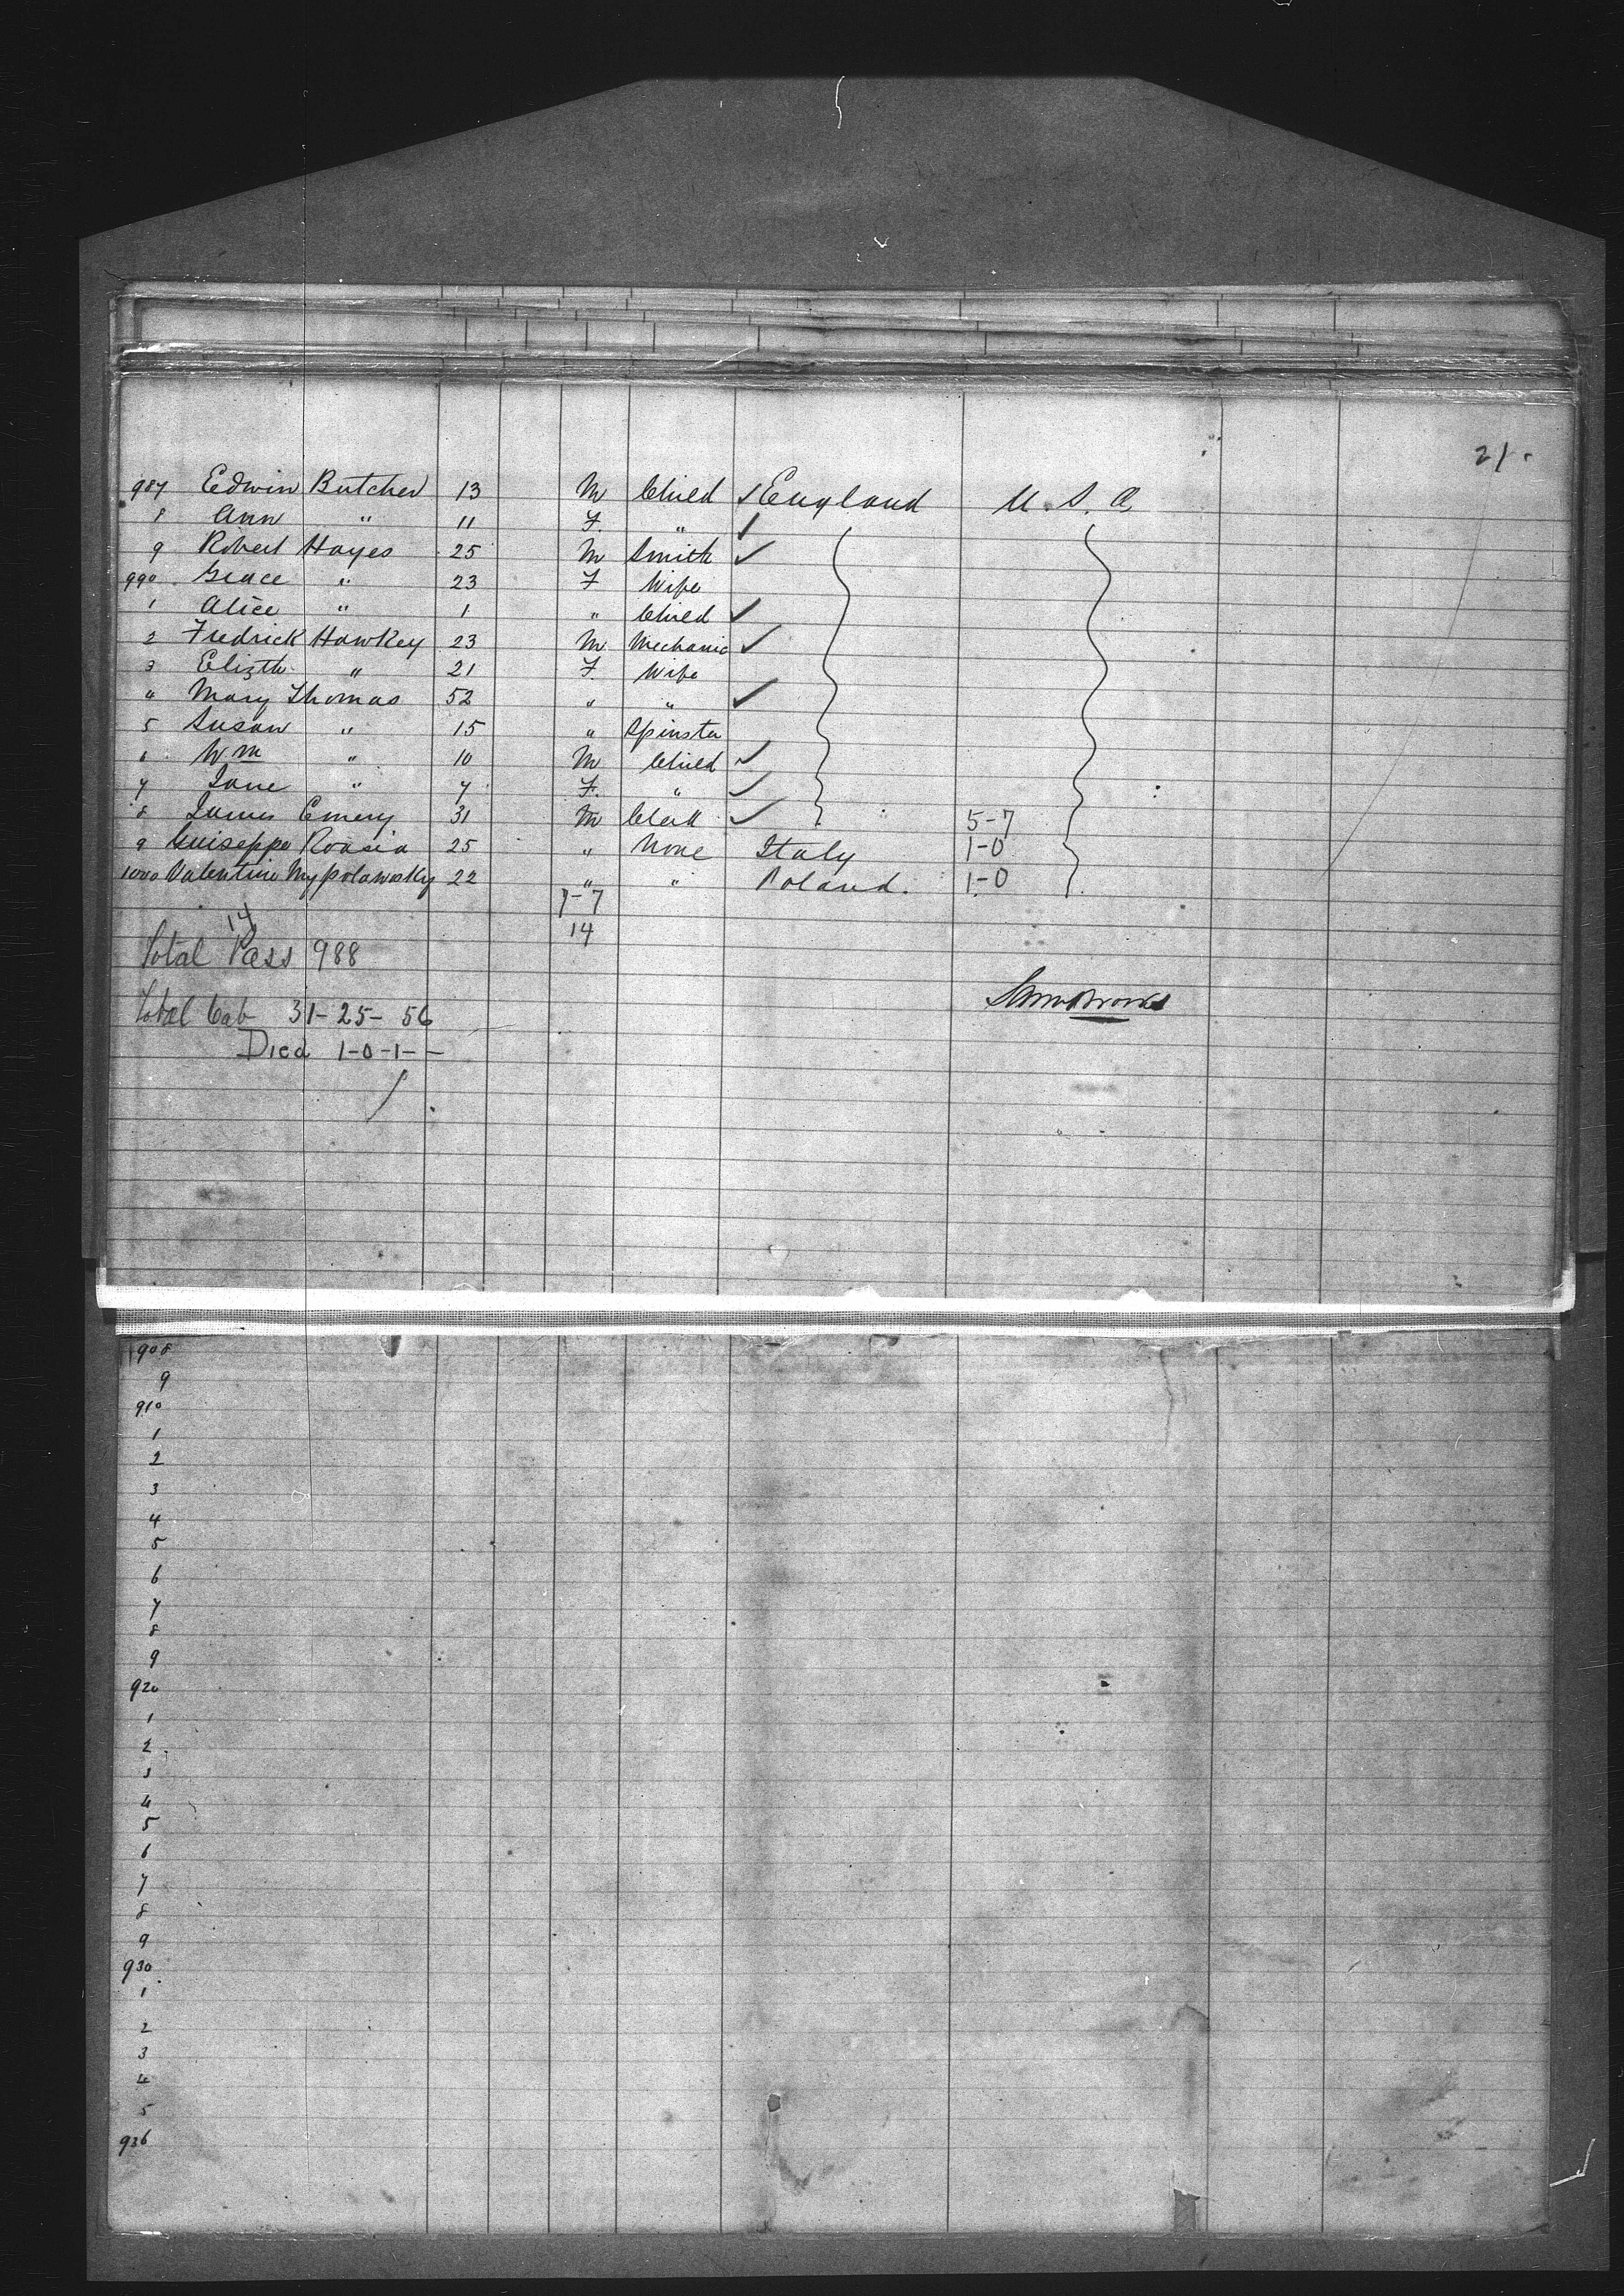 21.
987 Edwin Butcher 13 M Child ✓ England U.S.A
8 Ann " 11 F. " ✓
9 Robert Hayes 25 M Smith ✓
990 Grace " 23 F Wife
1 Alice " 1 " Child ✓
2 Fredrick Hawkey 23 M Mechanic ✓
3 Elizth " 21 F. Wife
4 Mary Thomas 52 " " ✓
5 Susan " 15 " Spinster
6 Wm " 10 M Child ✓
7 Jane " 7 F. " ✓
8 James Emery 31 M Clerk ✓ 5-7
9 Guiseppe Roasia 25 " None Italy 1-0
1000 Valentine 22 " " Poland. 1-0
7-7
14 14
Total Pass 988
Total Cab 31-25-56
Died 1-0-1--
908
9
910
1
2
3
4
5
6
7
8
9
920
1
2
3
4
5
6
7
8
9
930
1
2
3
4
5
936